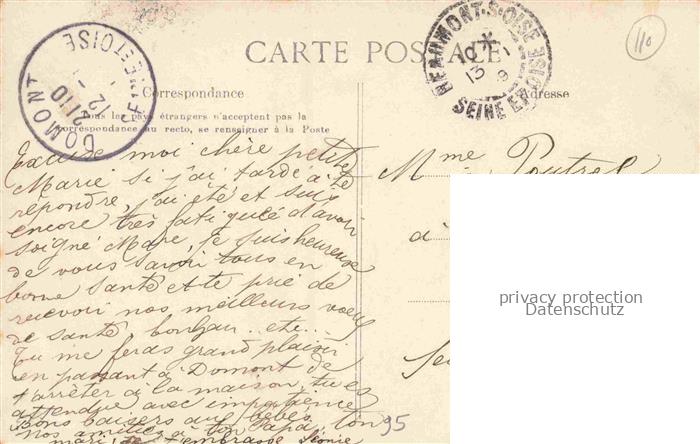 CARTE POSTALE
Correspondance
Adresse
Tous les pays étrangers n'acceptent pas la
correspondance au recto, se renseigner à la Poste
DOMONT SEINE ET OISE
BEAUMONT-S-OISE
SEINE ET OISE
110
Excuse moi chère petite
Marie si j'ai tardé à te
répondre, j'ai été et suis
encore très fatiguée d'avoir
soigné Mare, je suis heureuse
de vous savoir tous en
bonne santé et te prie de
recevoir nos meilleurs voeux
de santé bonheur etc...
Tu me feras grand plaisir
en passant à Domont de
t'arrêter à la maison, tu es
attendue avec impatience
Bons baisers aux bébés,
nos amitiés à ton Papa, ton
mari, je t'embrasse Léonie
95
Mme Poutrel
à
Sei
privacy protection
Datenschutz